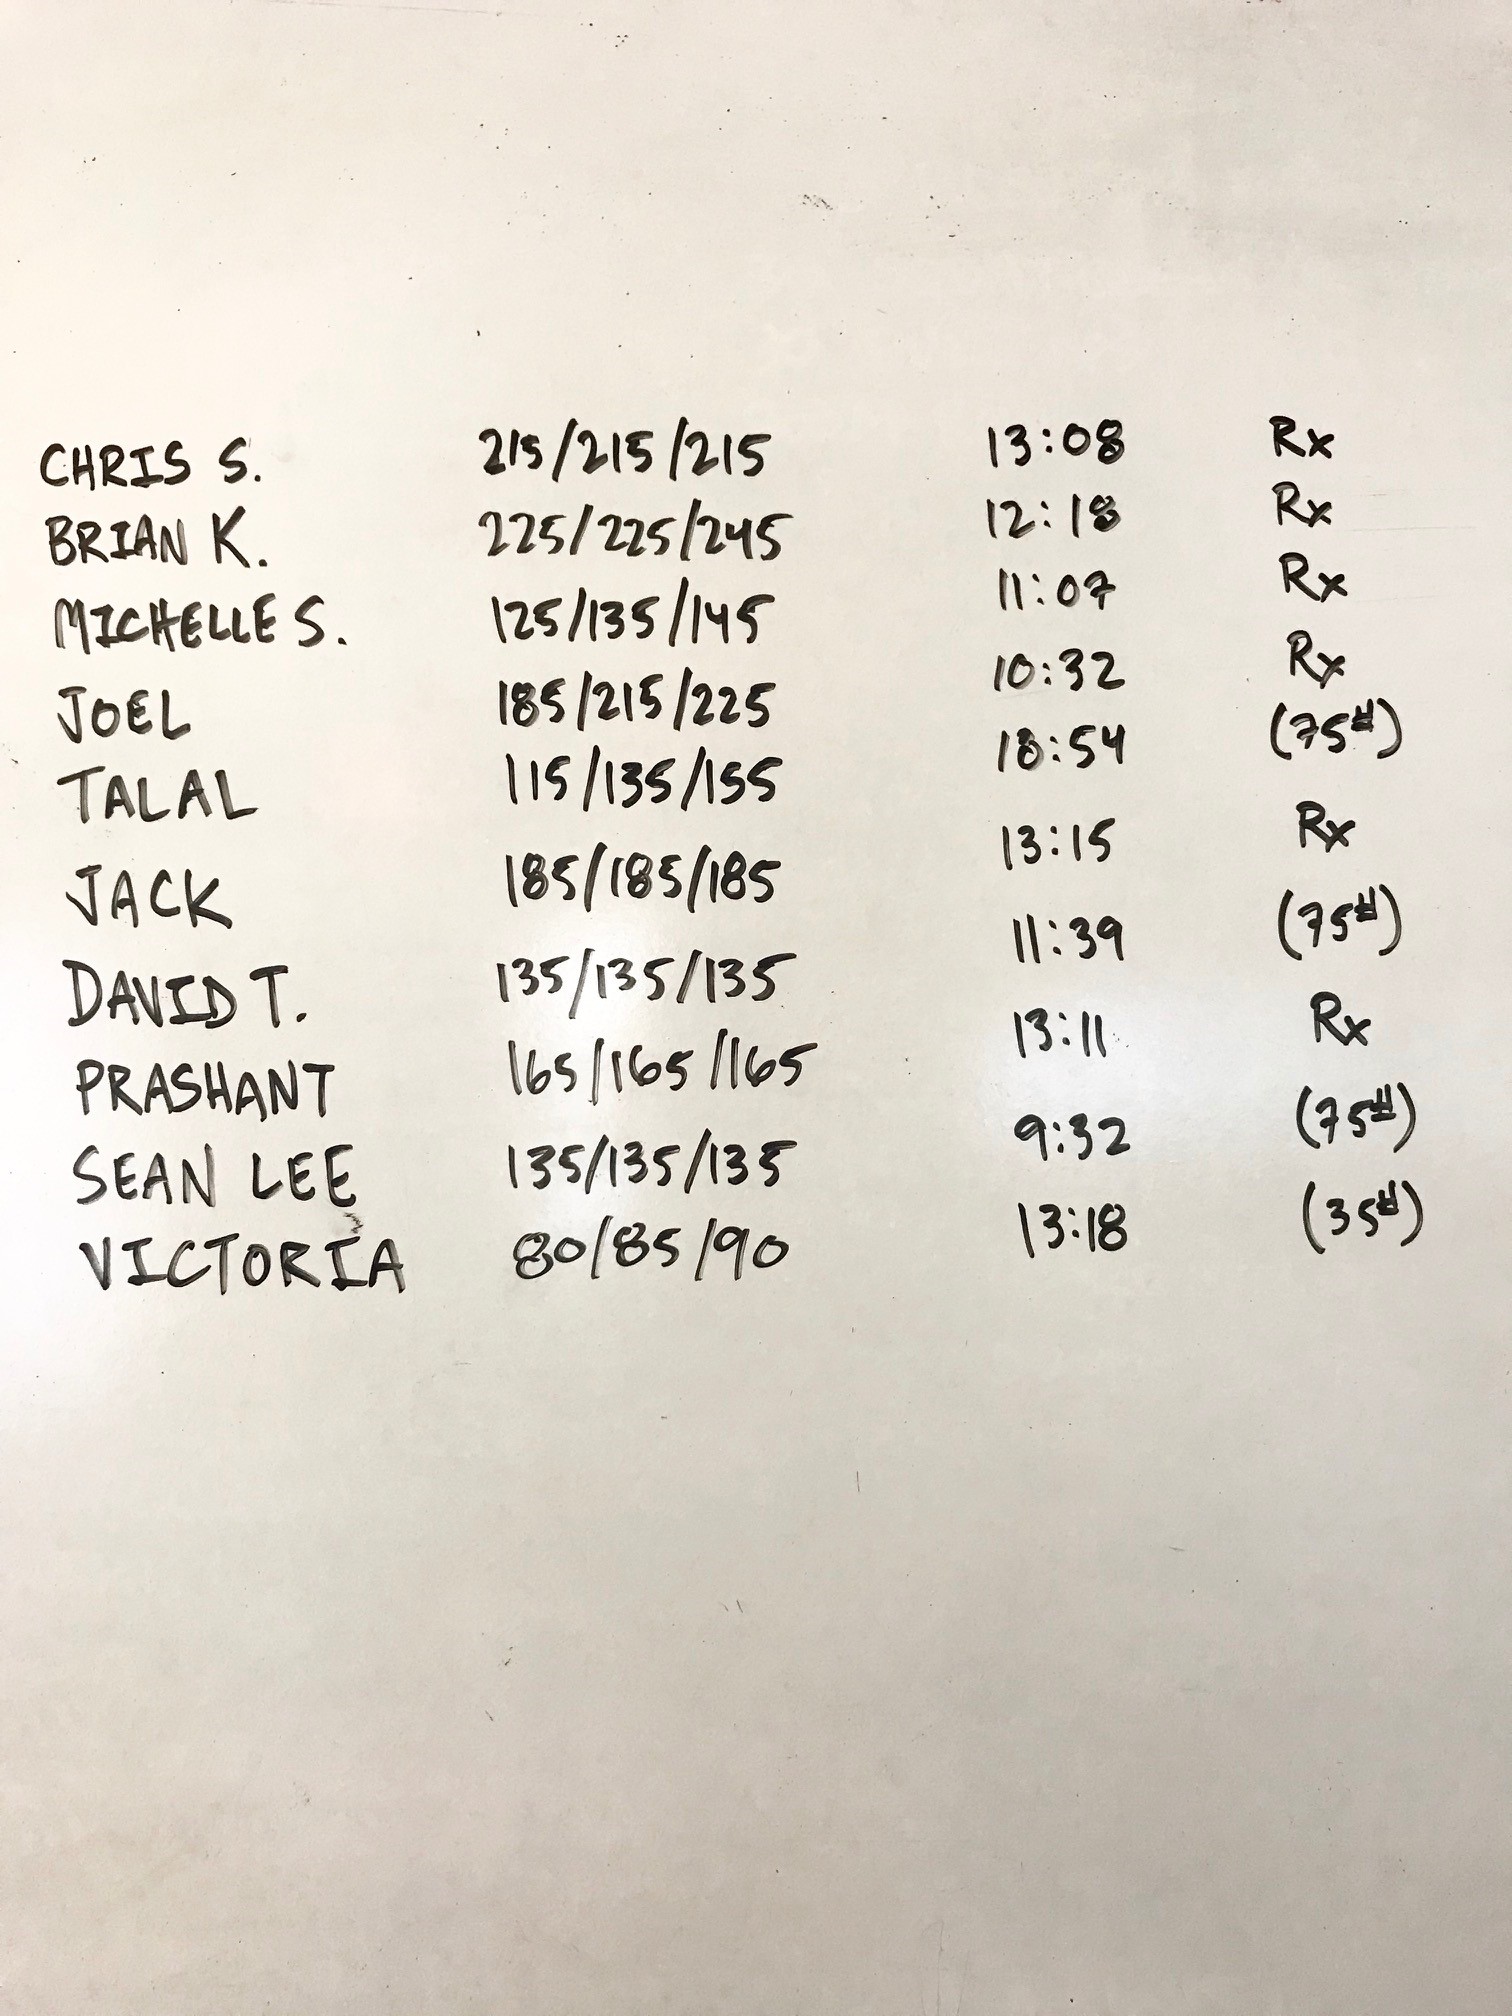 CHRIS S. 215/215/215 13:08 Rx
BRIAN K. 225/225/245 12:18 Rx
MICHELLE S. 125/135/145 11:07 Rx
JOEL 185/215/225 10:32 Rx
TALAL 115/135/155 18:54 (75#)
JACK 185/185/185 13:15 Rx
DAVID T. 135/135/135 11:39 (75#)
PRASHANT 165/165/165 13:11 Rx
SEAN LEE 135/135/135 9:32 (75#)
VICTORIA 80/85/90 13:18 (35#)